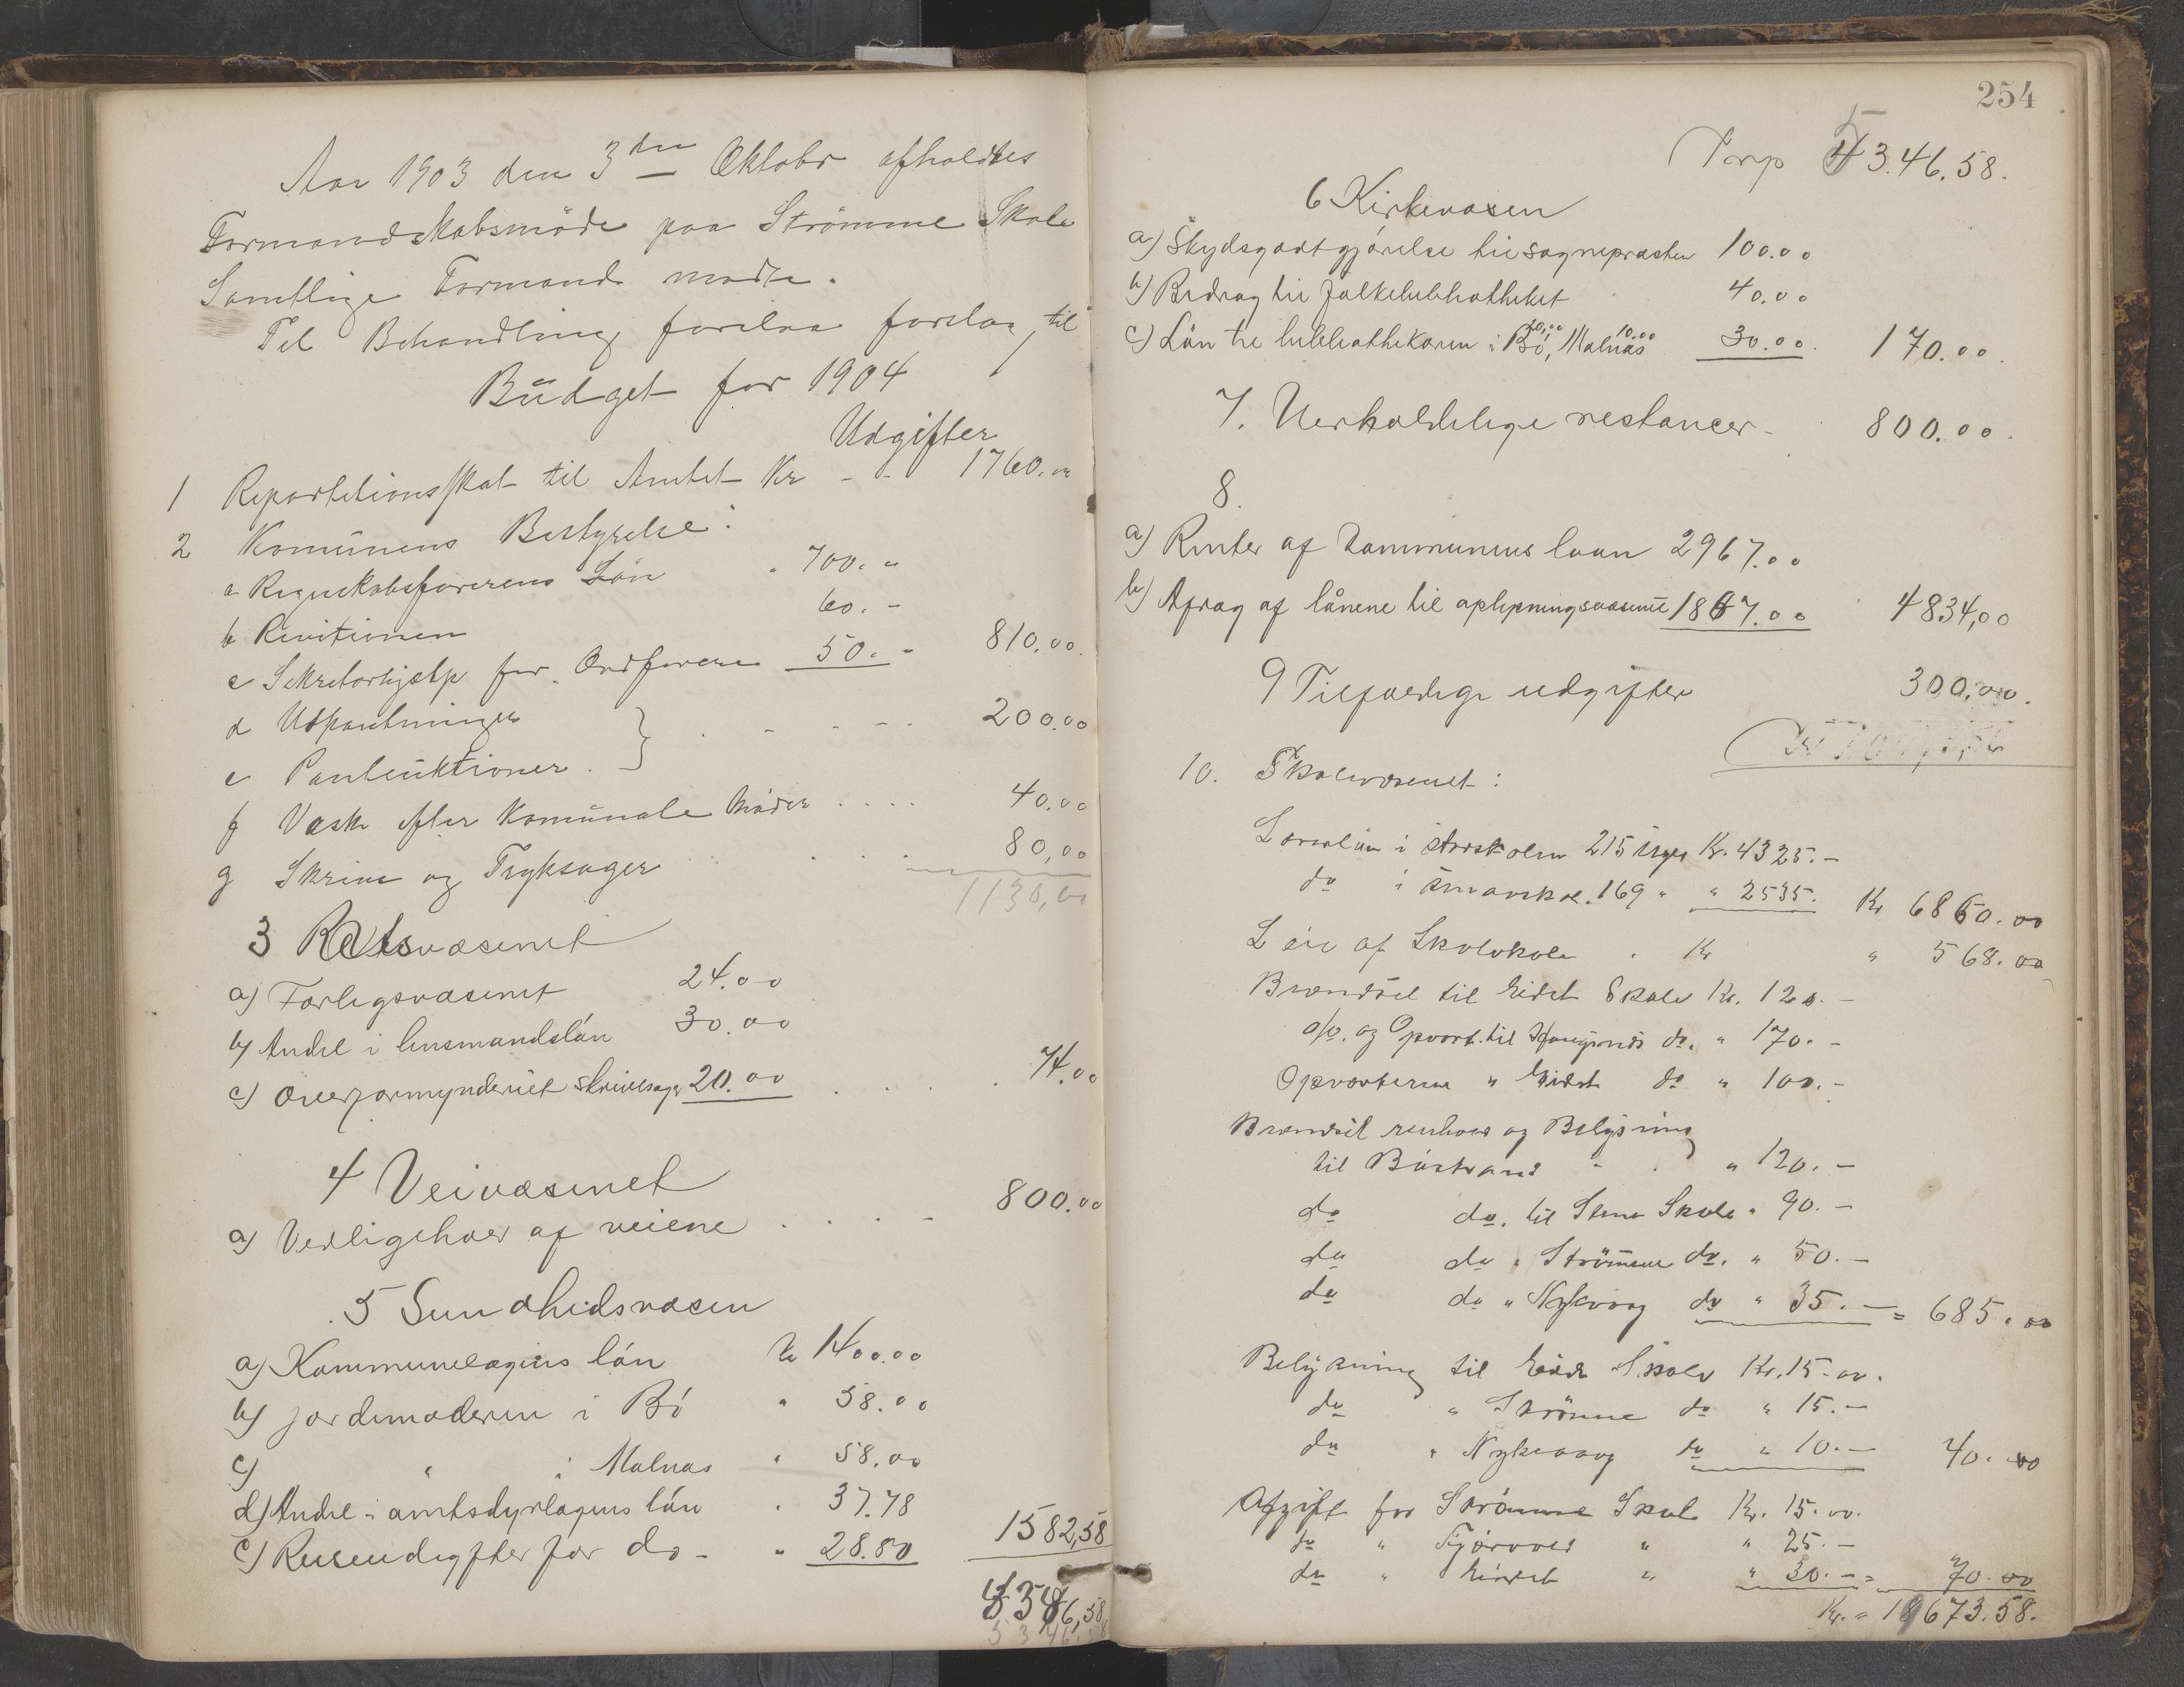 Aar 1903 den 3den Oktobr afholdtes
Formandskabsmöde paa Strömme Skole
Samtlige Formænd mødte.
Til Behandling forelaa forslag til
Budget for 1904
Udgifter
1 Repartitionsskat til Amtet Kr - - 1760.00
2 Komunens Bestyrelse:
a Regnskabsførerens Lön " 700. "
b Revitionen 60. -
c Sekretærhjælp for Ordføreren 50. - 810,00.
d Udpantninger
e Pantauktioner } . - - - . 200.00
f Vask efter Komunale Möder .... 40.00
g Skrive og Tryksager . . . . 80,00
1130,00
3 Retsvæsenet
a) Forligsvæsenet 24.00
b) Andel i lensmandslön 30.00
c) Overformynderiet skrivesager 20.00 . . . . 74.00
4 Veivæsenet
a) Vedligehold af veiene . . . - 800.00
5 Sundhedsvæsen
a) Kommunelægens lön Kr 1400.00
b) jordemoderen i Bö " 58.00
c) " i Malnæs " 58.00
d) Andel i amtsdyrlægens lön . 37.78
e) Reiseudgifter for do - " 28.80 1582,58
5346,58
5346,58
254
Transp 5346.58.
6 Kirkevæsen
a) Skydsgodtgjörelse til sognepræsten 100.00
b) Bidrag til folkebibliotheket 40.00
c) Lön til bibliothekaren i Bö, 20,00 Malnæs 10.00 30.00. 170.00.
7. Uerholdelige restancer - 800.00.
8.
a) Renter af kommunens laan 2967.00
b) Afdrag af lånene til oplysningsvæsenet 1867.00 4834,00
9 Tilfældige udgifter 300,00.
10. Skolevæsenet:
Lærerlön i storskolen 215 Uger Kr. 4325. -
do i småskol. 169 " " 2535. Kr 6860.00
Leie af Skolelokale . Kr " 568.00
Brændsel til Eidet Skole Kr. 120. -
do. og Opvart. til Haugsnes do. " 170. -
Opvarteren " Eidet do " 100. -
Brændsel renhold og Belysning
til Böstrand - . " 120. -
do do. til Steine Skole " 90. -
do do " Strömme do. " 50. -
do do " Nykvaag do " 35. - = 685.00
Belysning til Eidet Skole Kr. 15.00.
do " Strömme do " 15. -
do " Nykvaag do " 10. - 40.00
Afgift for Strömme Skole Kr. 15.00.
do " Fjærvoll " " 25. -
do " Eidet " " 30. - = 70.00
Kr. = 19673.58.